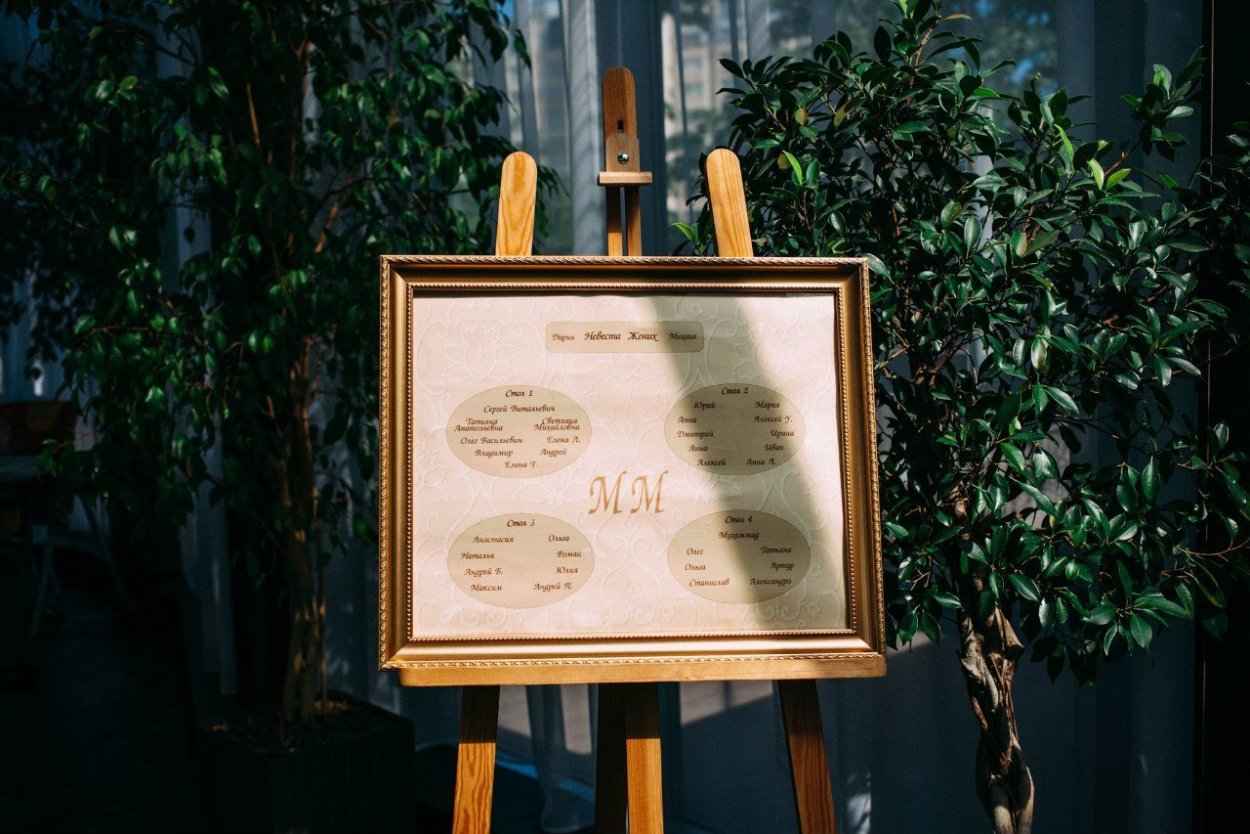 Дария Невеста Жених Михаил
Стол 1
Сергей Витальевич
Татьяна Анатольевна Светлана Михайловна
Олег Васильевич Елена А.
Владимир Андрей
Елена Т.
Стол 2
Юрий Мария
Анна Алексей У.
Дмитрий Ирина
Анна Иван
Алексей Анна А.
ММ
Стол 3
Анастасия Ольга
Наталья Роман
Андрей Б. Юлия
Максим Андрей П.
Стол 4
Мухиммад
Олег Татьяна
Ольга Артур
Станислав Александра